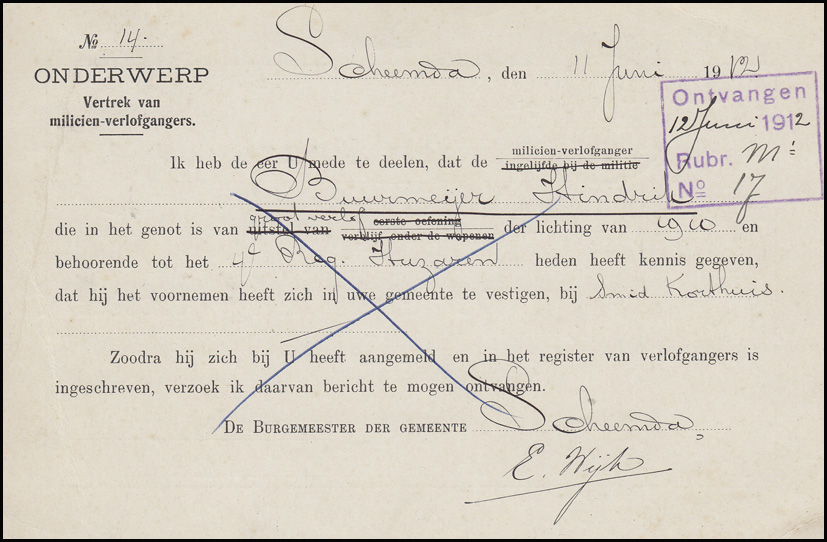 No 14.
Scheemda, den 11 Juni 1912
ONDERWERP
Vertrek van
milicien-verlofgangers.
Ontvangen
12 Juni 1912
Rubr. M:
No 17
Ik heb de eer U mede te deelen, dat de milicien-verlofganger
ingelijfde bij de militie
Buurmeijer Hindrik
groot verlof
die in het genot is van uitstel van eerste oefening
verblijf onder de wapenen der lichting van 1910 en
behoorende tot het 4e Reg. Huzaren heden heeft kennis gegeven,
dat hij het voornemen heeft zich in uwe gemeente te vestigen, bij Smid Korthuis.
Zoodra hij zich bij U heeft aangemeld en in het register van verlofgangers is
ingeschreven, verzoek ik daarvan bericht te mogen ontvangen.
DE BURGEMEESTER DER GEMEENTE Scheemda,
E. Wijk